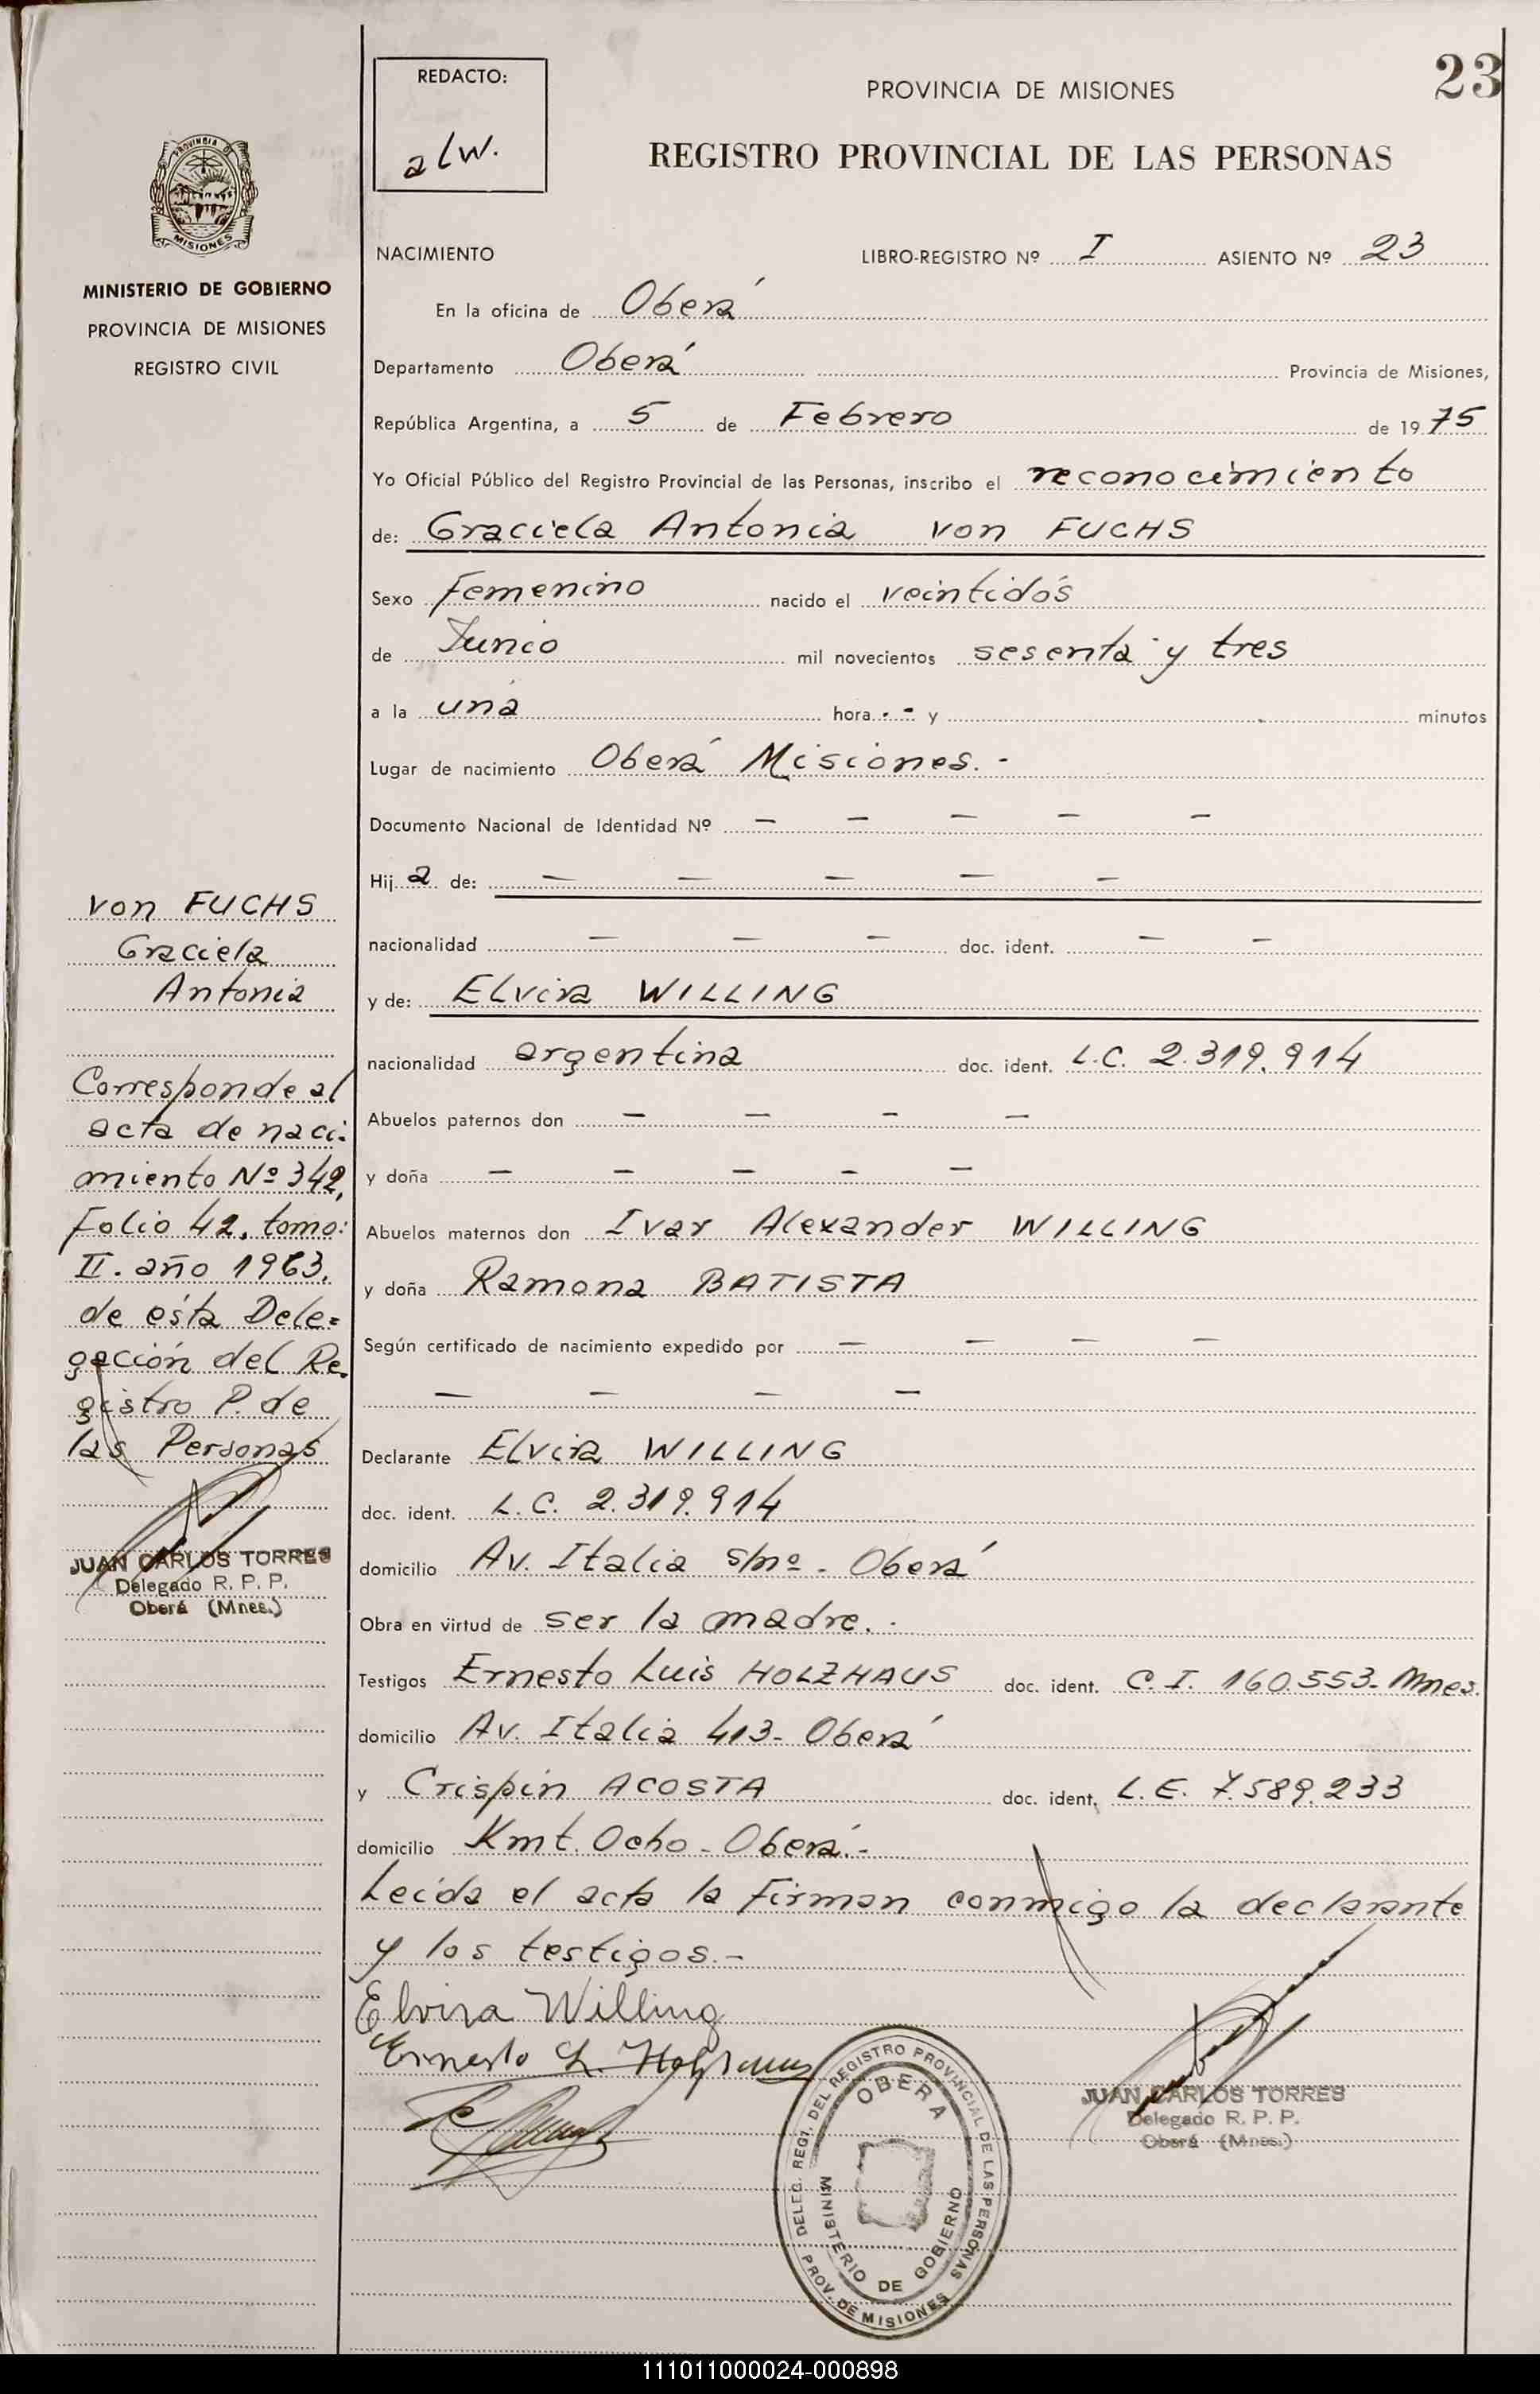 23
REDACTO:
alw.
PROVINCIA DE MISIONES
REGISTRO PROVINCIAL DE LAS PERSONAS
PROVINCIA DE
MISIONES
MINISTERIO DE GOBIERNO
PROVINCIA DE MISIONES
REGISTRO CIVIL
NACIMIENTO LIBRO-REGISTRO Nº I ASIENTO Nº 23
En la oficina de Oberá
Departamento Oberá Provincia de Misiones,
República Argentina, a 5 de Febrero de 1975
Yo Oficial Público del Registro Provincial de las Personas, inscribo el reconocimiento
de: Graciela Antonia von FUCHS
Sexo Femenino nacido el veintidós
de Junio mil novecientos sesenta y tres
a la una hora. - y minutos
Lugar de nacimiento Oberá Misiones. -
Documento Nacional de Identidad Nº — — — — —
Hija de: — — — — —
nacionalidad — — — doc. ident. — —
y de: Elvira WILLING
nacionalidad argentina doc. ident. L.C. 2.319.914
Abuelos paternos don — — — —
y doña — — — — —
Abuelos maternos don Ivar Alexander WILLING
y doña Ramona BATISTA
Según certificado de nacimiento expedido por — — — —
— — — —
Declarante Elvira WILLING
doc. ident. L.C. 2.319.914
domicilio Av. Italia s/nº - Oberá
Obra en virtud de ser la madre. -
Testigos Ernesto Luis HOLZHAUS doc. ident. C.I. 160.553- Mnes.
domicilio Av. Italia 413- Oberá
y Crispín ACOSTA doc. ident. L.E. 7.589.233
domicilio Kmt. Ocho - Oberá.-
Leída el acta la firman conmigo la declarante
y los testigos.-
Elvira Willing
Ernesto L. Holzhaus
von FUCHS
Graciela
Antonia
Corresponde al
acta de naci-
miento Nº 342,
Folio 42, tomo:
II. año 1963.
de ésta Dele=
gación del Re.
gistro P. de
las Personas
JUAN CARLOS TORRES
Delegado R. P. P.
Oberá (Mnes.)
DELEG. REGI. DEL REGISTRO PROVINCIAL DE LAS PERSONAS
OBERA
MINISTERIO DE GOBIERNO
PROV. DE MISIONES
JUAN CARLOS TORRES
Delegado R. P. P.
Oberá (Mnes.)
111011000024-000898